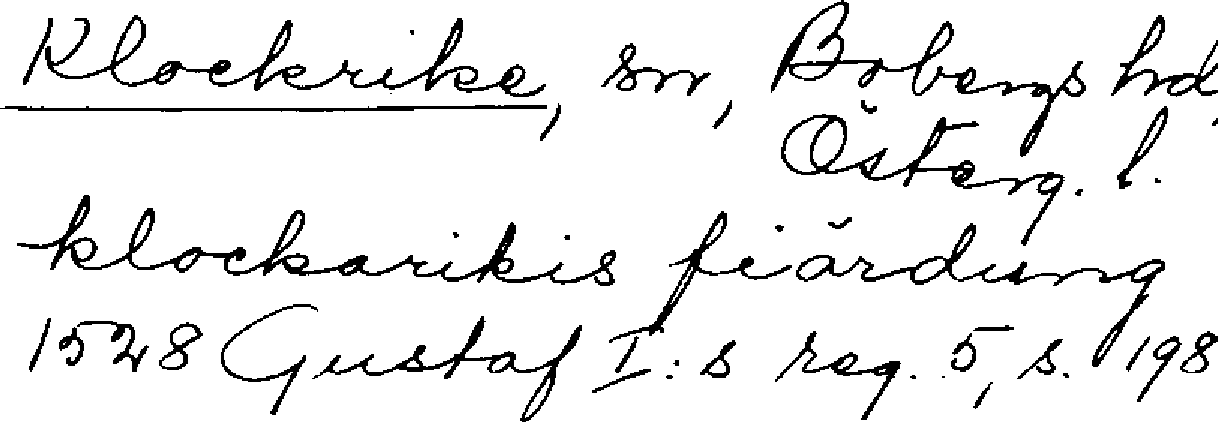 Klockrike, sn, Bobergs hd,
Österg. l.
klockarikis fiärdung
1528 Gustaf I:s reg. 5, s. 198